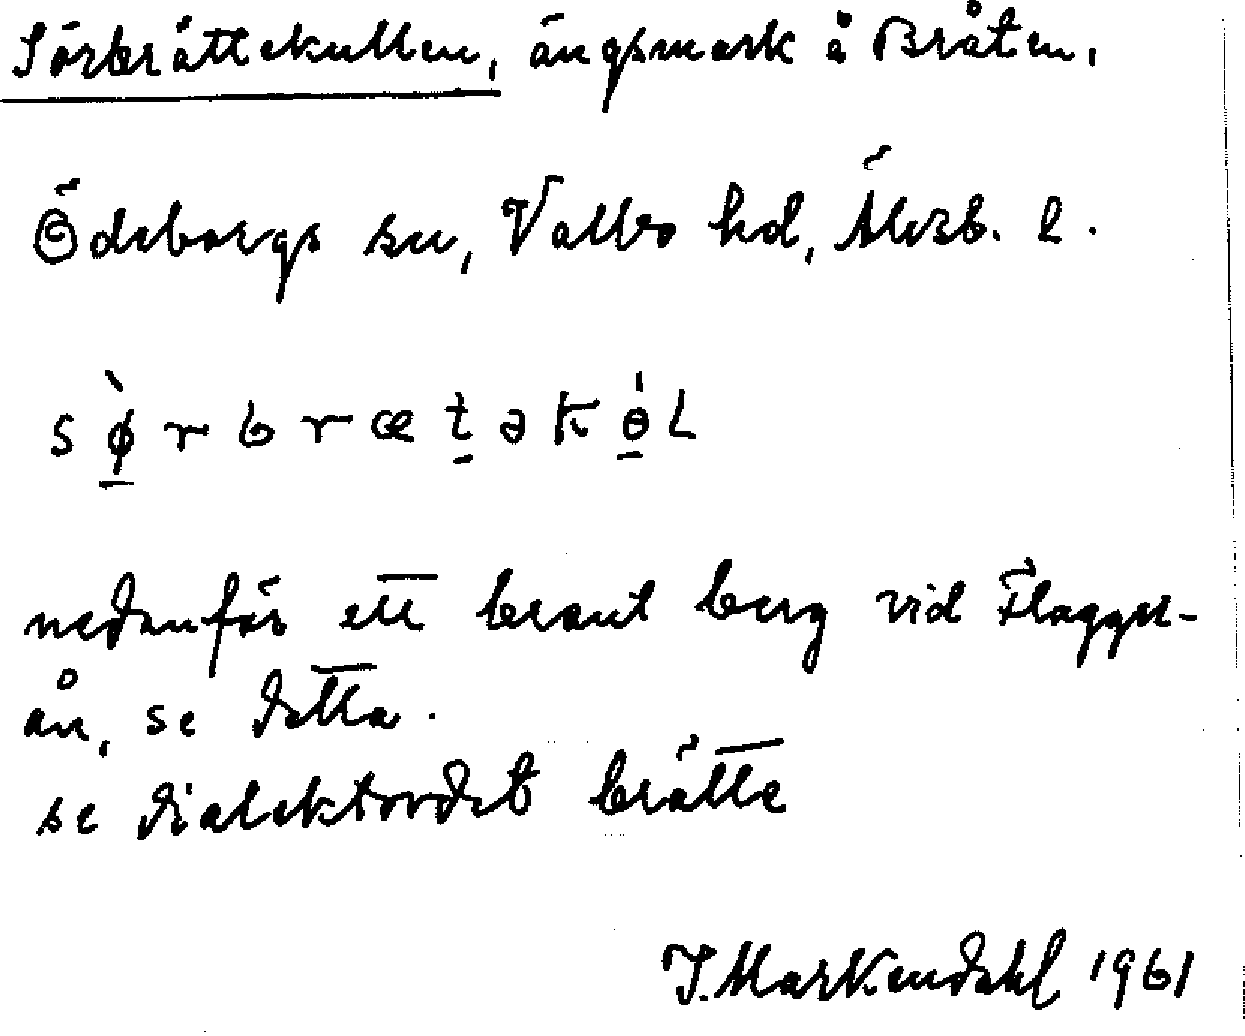 Sörbrättekullen, ängsmark å Bråten,
Ödeborgs sn, Valbo hd, Älvsb. l.
s ø̀ r b r æ t ə k ɵ́ L
nedanför ett brant berg vid Flagge-
ån, se detta.
se dialektordet brätte
J. Markendahl 1961